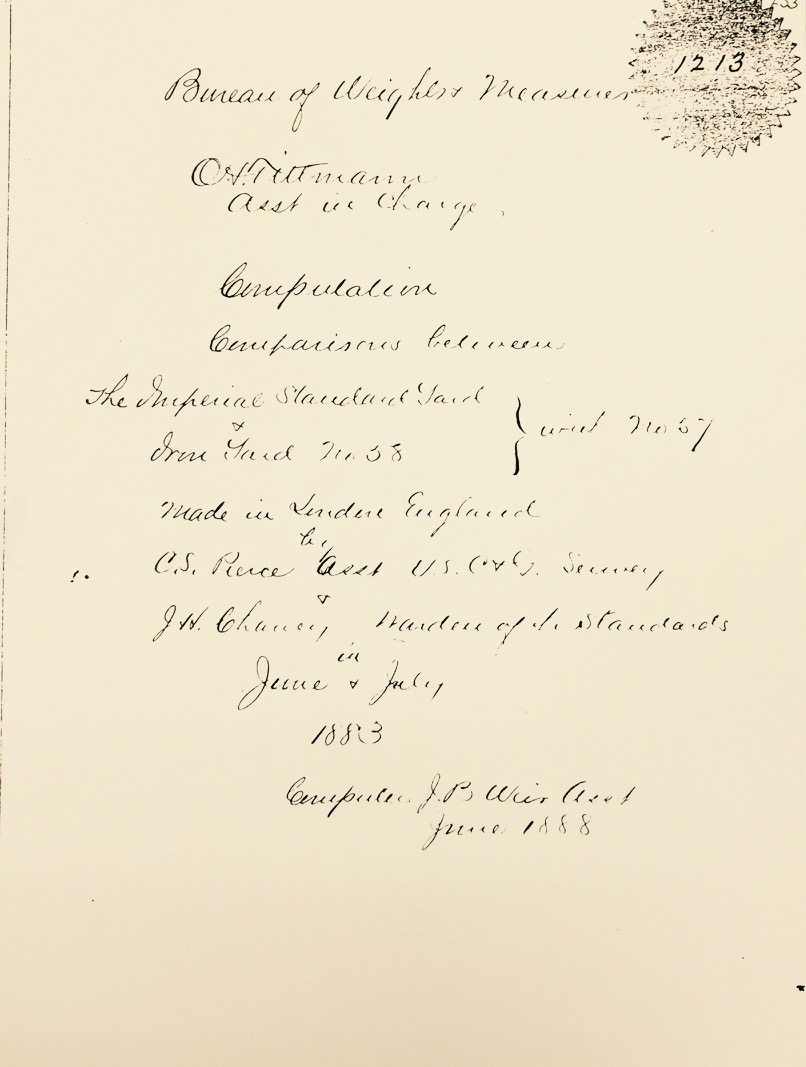 1213
Bureau of Weights & Measures
O.H. Tittmann
Asst in Charge,
Computation
Comparisons between
The Imperial Standard Yard
&
Iron Yard No 58
} with No 57
Made in London England
by
C.S. Pierce Asst U.S. C&G. Survey
&
J.H. Chaney Warden of the Standards
in
June & July
1883
Computer J.B. Weir Asst
June 1888